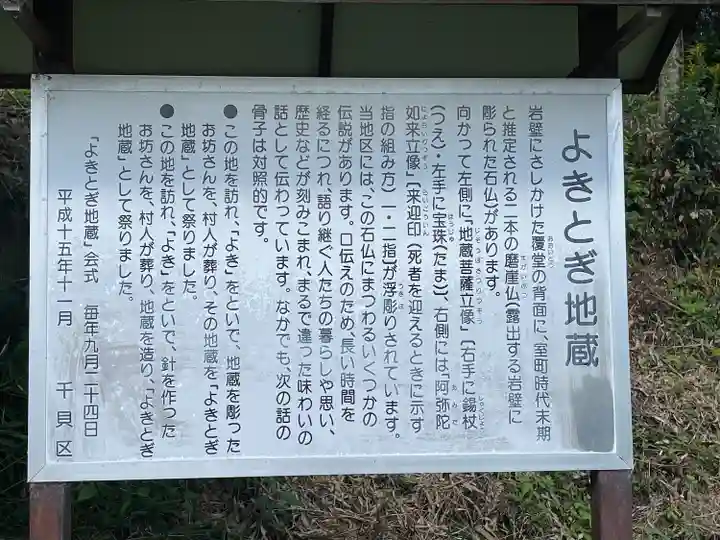 よきとぎ地蔵
岩壁にさしかけた覆堂の背面に、室町時代末期
と推定される二本の磨崖仏(露出する岩壁に
彫られた石仏)があります。
向かって左側に「地蔵菩薩立像」〔右手に錫杖
(つえ)・左手に宝珠(たま)〕、右側には、「阿弥陀
如来立像」〔来迎印(死者を迎えるときに示す
指の組み方)一・二指〕が浮彫りされています。
当地区には、この石仏にまつわるいくつかの
伝説があります。口伝えのため、長い時間を
経るにつれ、語り継ぐ人たちの暮らしや思い、
歴史などが刻みこまれ、まるで違った味わいの
話として伝わっています。なかでも、次の話の
骨子は対照的です。
●この地を訪れ、「よき」をといで、地蔵を彫った
お坊さんを、村人が葬り、その地蔵を「よきとぎ
地蔵」として祭りました。
●この地を訪れ、「よき」をといで、針を作った
お坊さんを、村人が葬り、地蔵を造り、「よきとぎ
地蔵」として祭りました。
「よきとぎ地蔵」会式 毎年九月二十四日
平成十五年十一月 千貝区